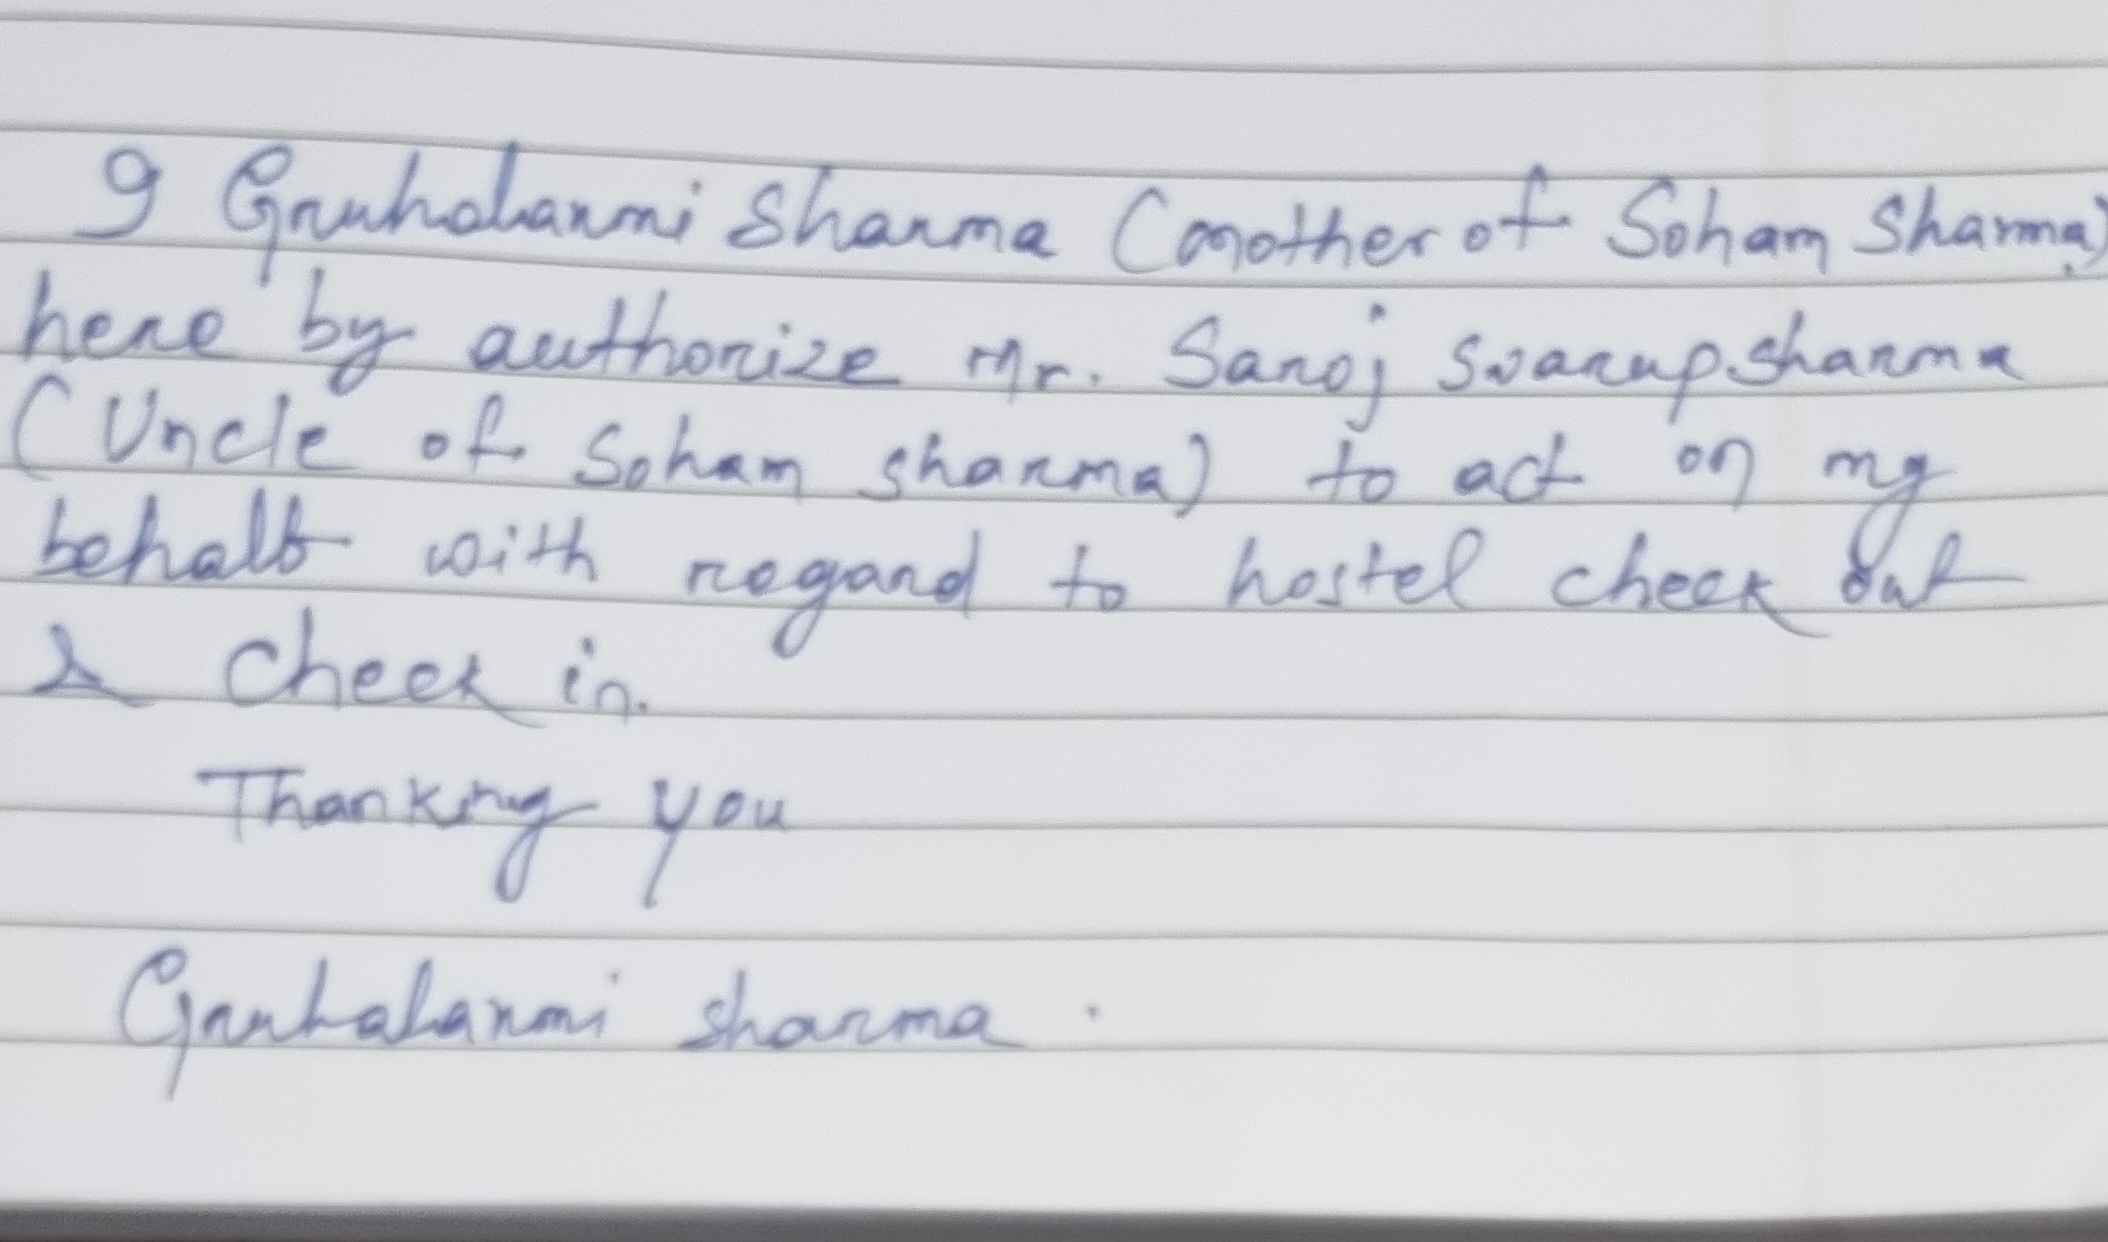 I Gruhalaxmi Sharma (mother of Soham Sharma)
here by authorize Mr. Saroj Swarup Sharma
(Uncle of Soham Sharma) to act on my
behalf with regard to hostel check out
& check in.
Thanking you
Gruhalaxmi Sharma .